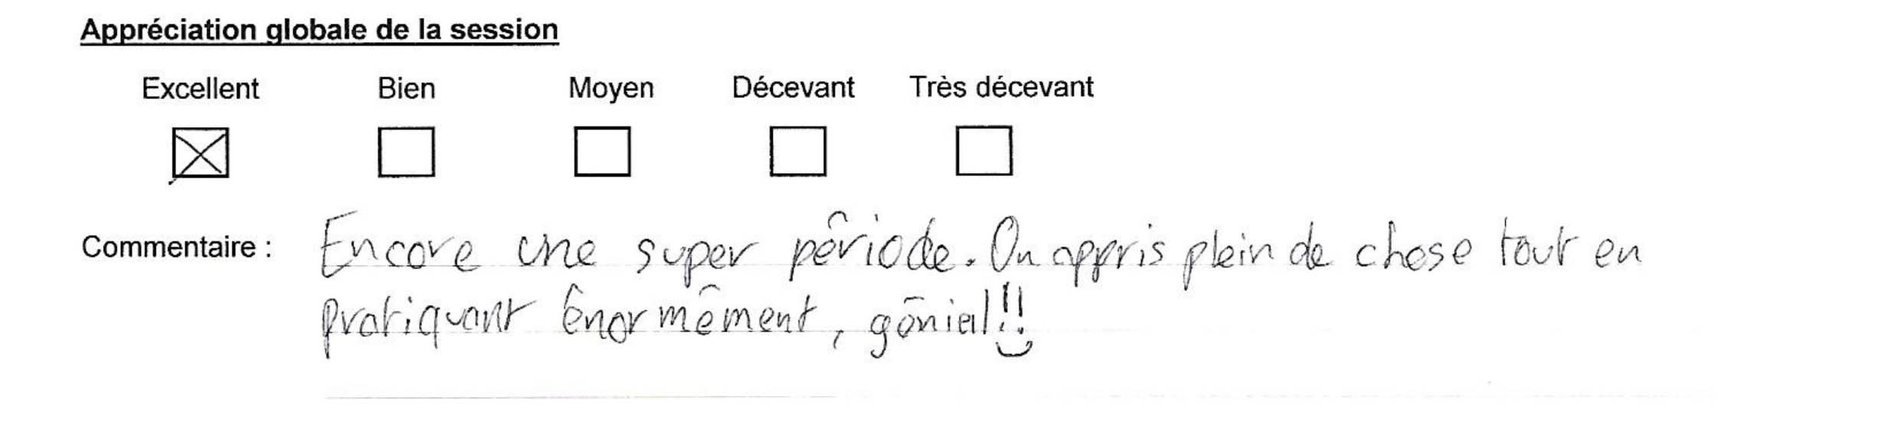 Appréciation globale de la session
Excellent Bien Moyen Décevant Très décevant
Commentaire : Encore une super période. On appris plein de chose tout en
pratiquant énormément, génial!!